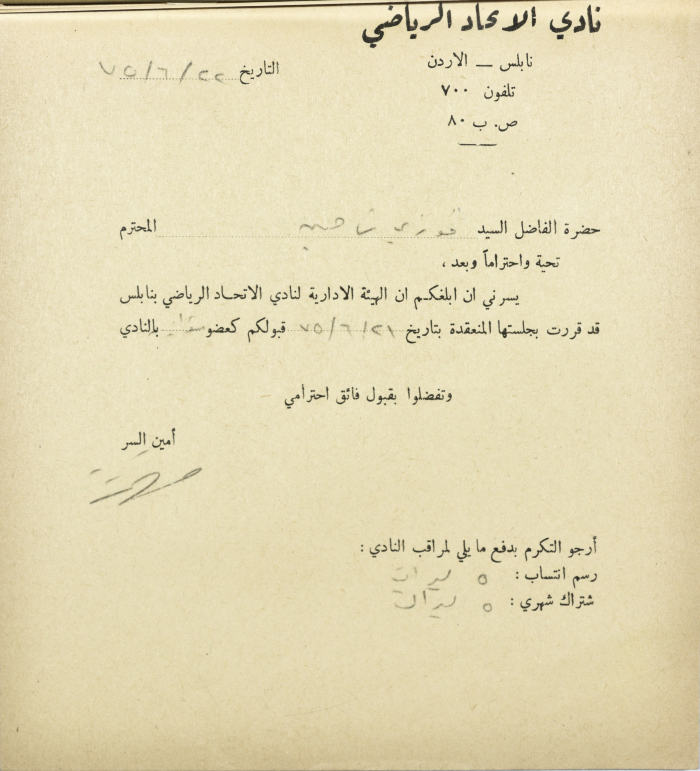 نادي الاتحاد الرياضي
نابلس — الاردن
تلفون ٧٠٠
ص. ب ٨٠
التاريخ ٧٥/٦/٢٢
حضرة الفاضل السيد فوزي شاهين المحترم
تحية واحتراماً وبعد ،
يسرني ان ابلغكم ان الهيئة الادارية لنادي الاتحاد الرياضي بنابلس
قد قررت بجلستها المنعقدة بتاريخ ٧٥/٦/٢١ قبولكم كعضو بالنادي
وتفضلوا بقبول فائق احترامي
أمين السر
أرجو التكرم بدفع ما يلي لمراقب النادي :
رسم انتساب : ٥ ليرات
شتراك شهري : ٥ ليرات